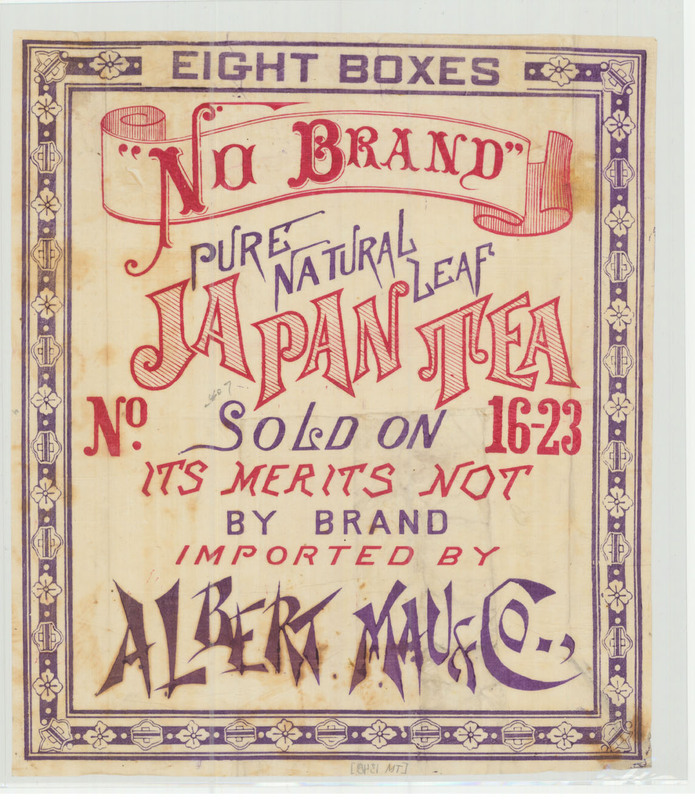 EIGHT BOXES
"No BRAND"
PURE NATURAL LEAF
JAPAN TEA
No. SOLD ON 16-23
ITS MERITS NOT
BY BRAND
IMPORTED BY
ALBERT MAU & Co.,